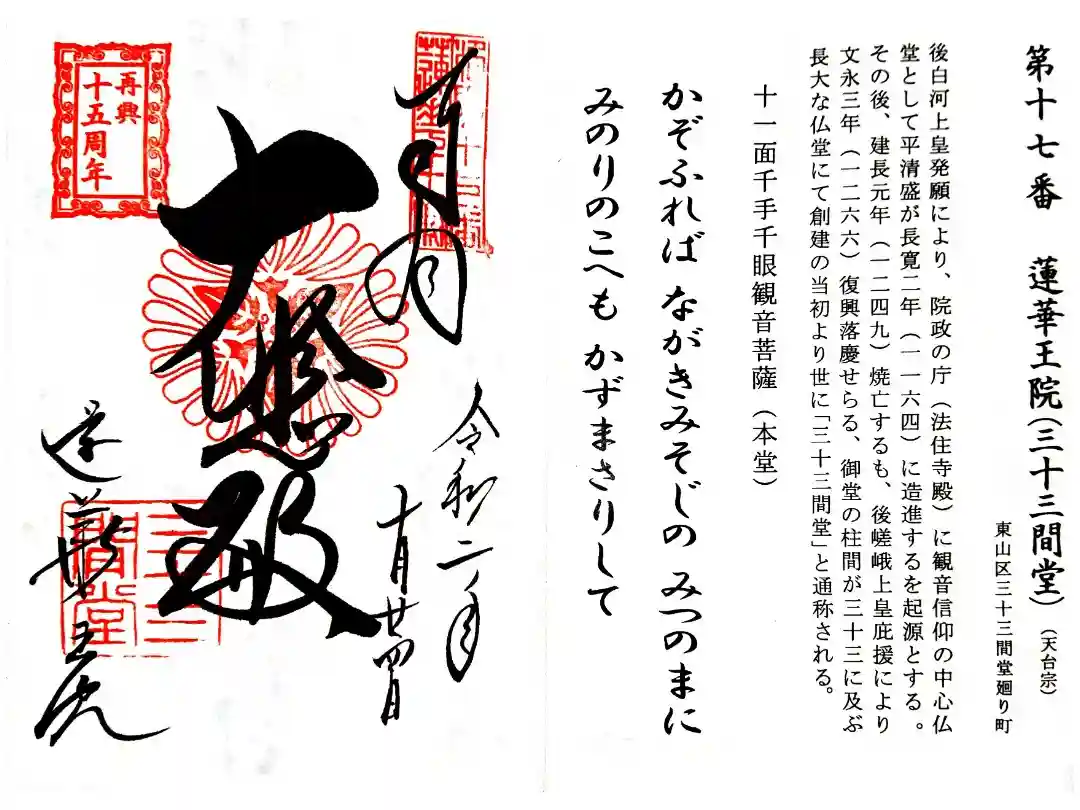 第十七番 蓮華王院(三十三間堂)(天台宗)
東山区三十三間堂廻り町
後白河上皇発願により、院政の庁(法住寺殿)に観音信仰の中心仏
堂として平清盛が長寛二年(一一六四)に造進するを起源とする。
その後、建長元年(一二四九)焼亡するも、後嵯峨上皇庇援により
文永三年(一二六六)復興落慶せらる、御堂の柱間が三十三に及ぶ
長大な仏堂にて創建の当初より世に「三十三間堂」と通称される。
十一面千手千眼観音菩薩(本堂)
かぞふれば ながきみそじの みつのまに
みのりのこへも かずまさりして
令和二年
十月廿四日
奉拝
大悲殿
蓮華王院
再興
十五周年
三十三
間堂